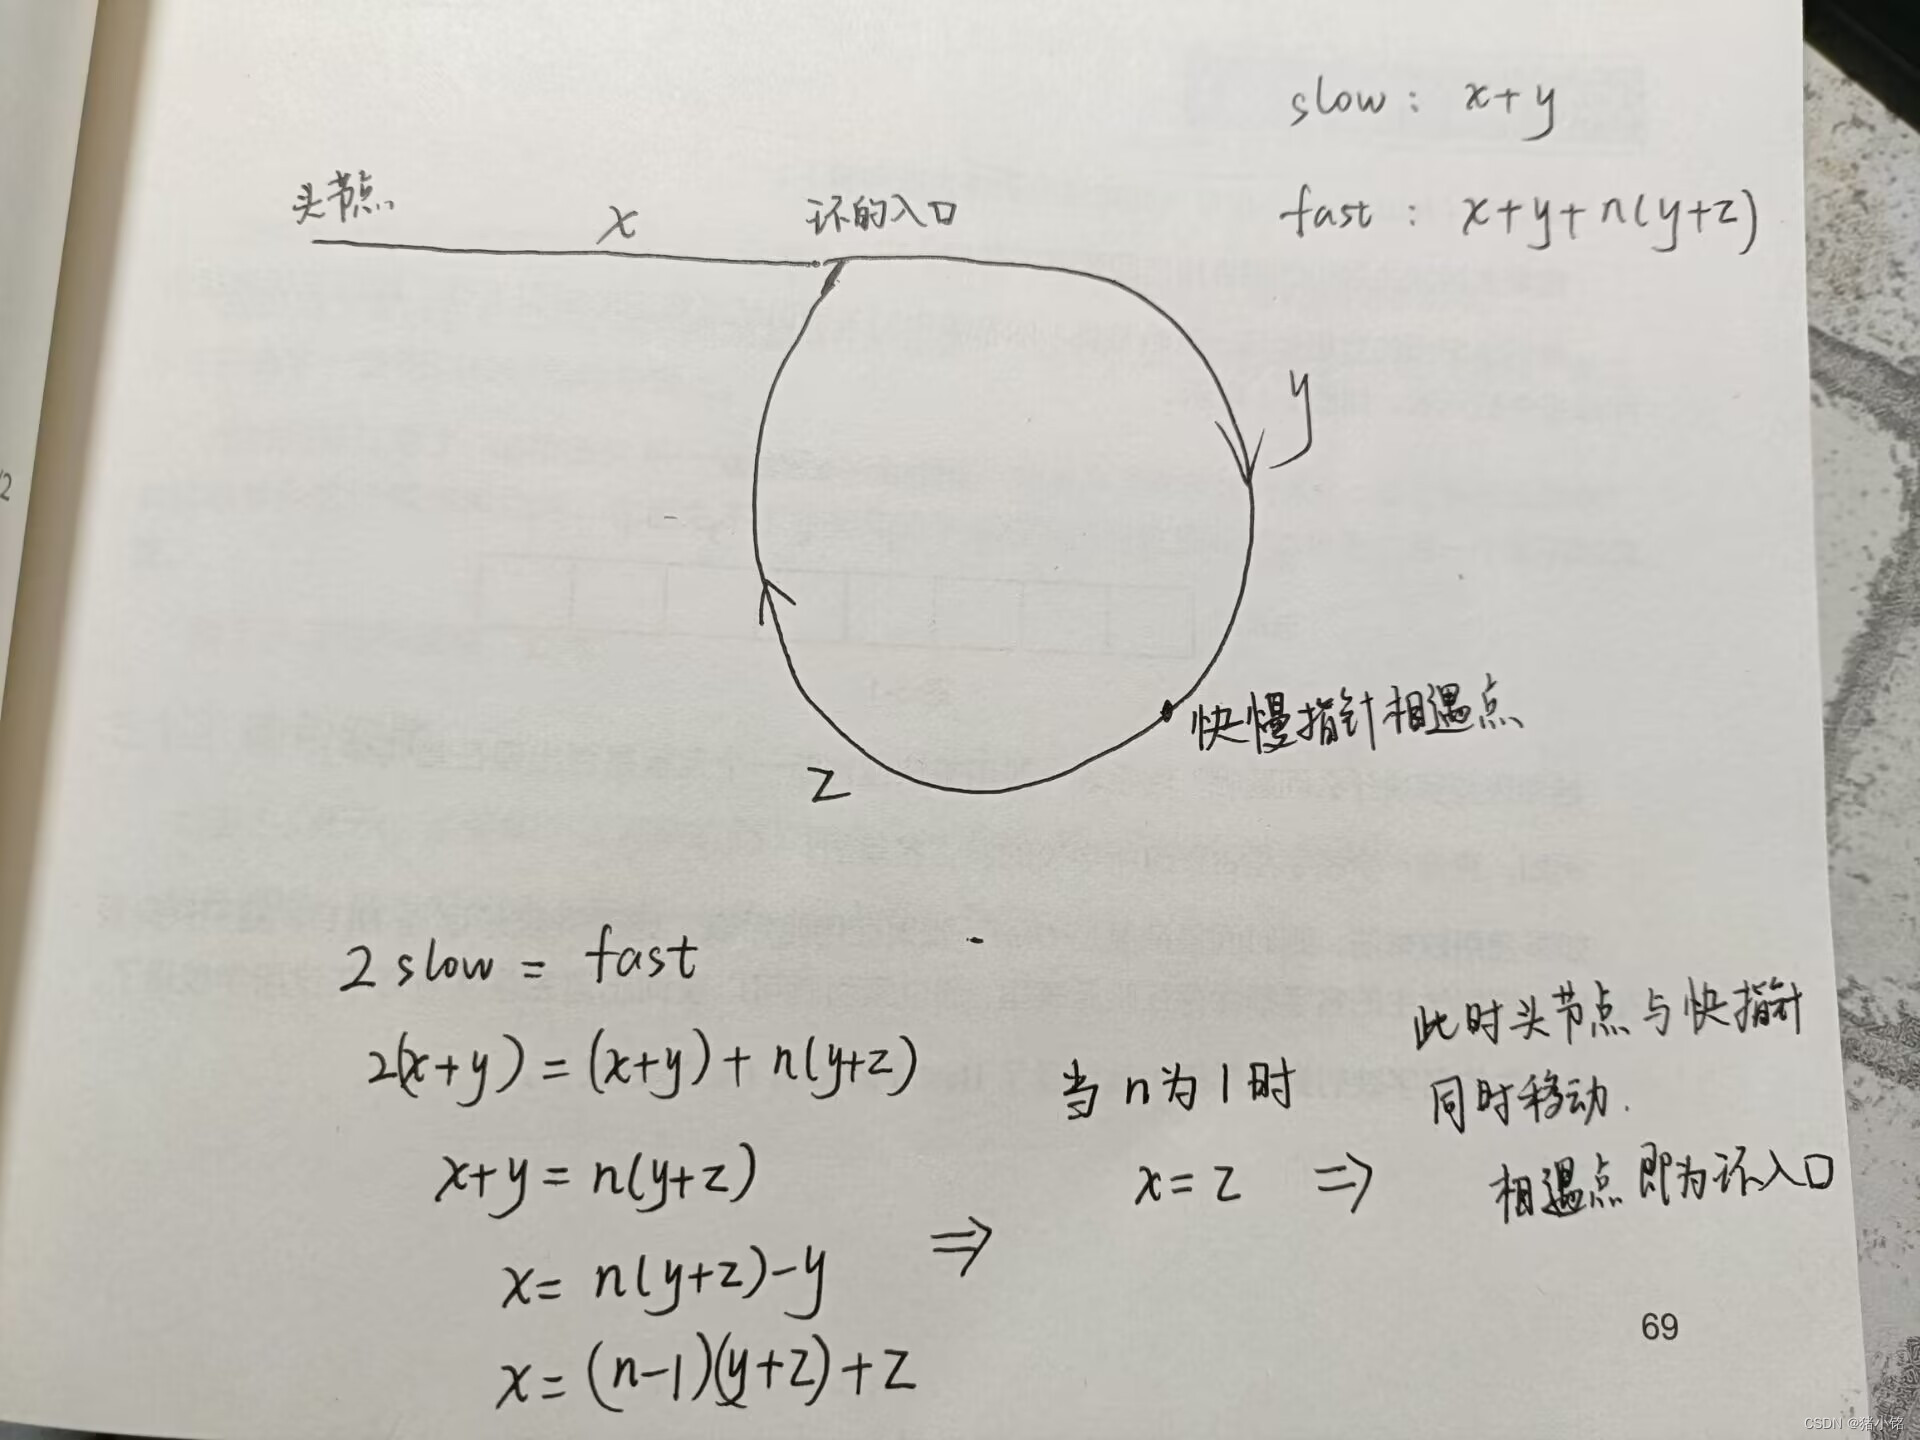 slow: x+y
fast: x+y+n(y+z)
头节点
x
环的入口
y
快慢指针相遇点
z
2 slow = fast
2(x+y) = (x+y) + n(y+z)
x+y = n(y+z)
x = n(y+z)-y
x = (n-1)(y+z)+z
⇒
当 n 为 1 时
x = z ⇒
此时头节点与快指针
同时移动.
相遇点即为环入口
69
CSDN @猪小铭